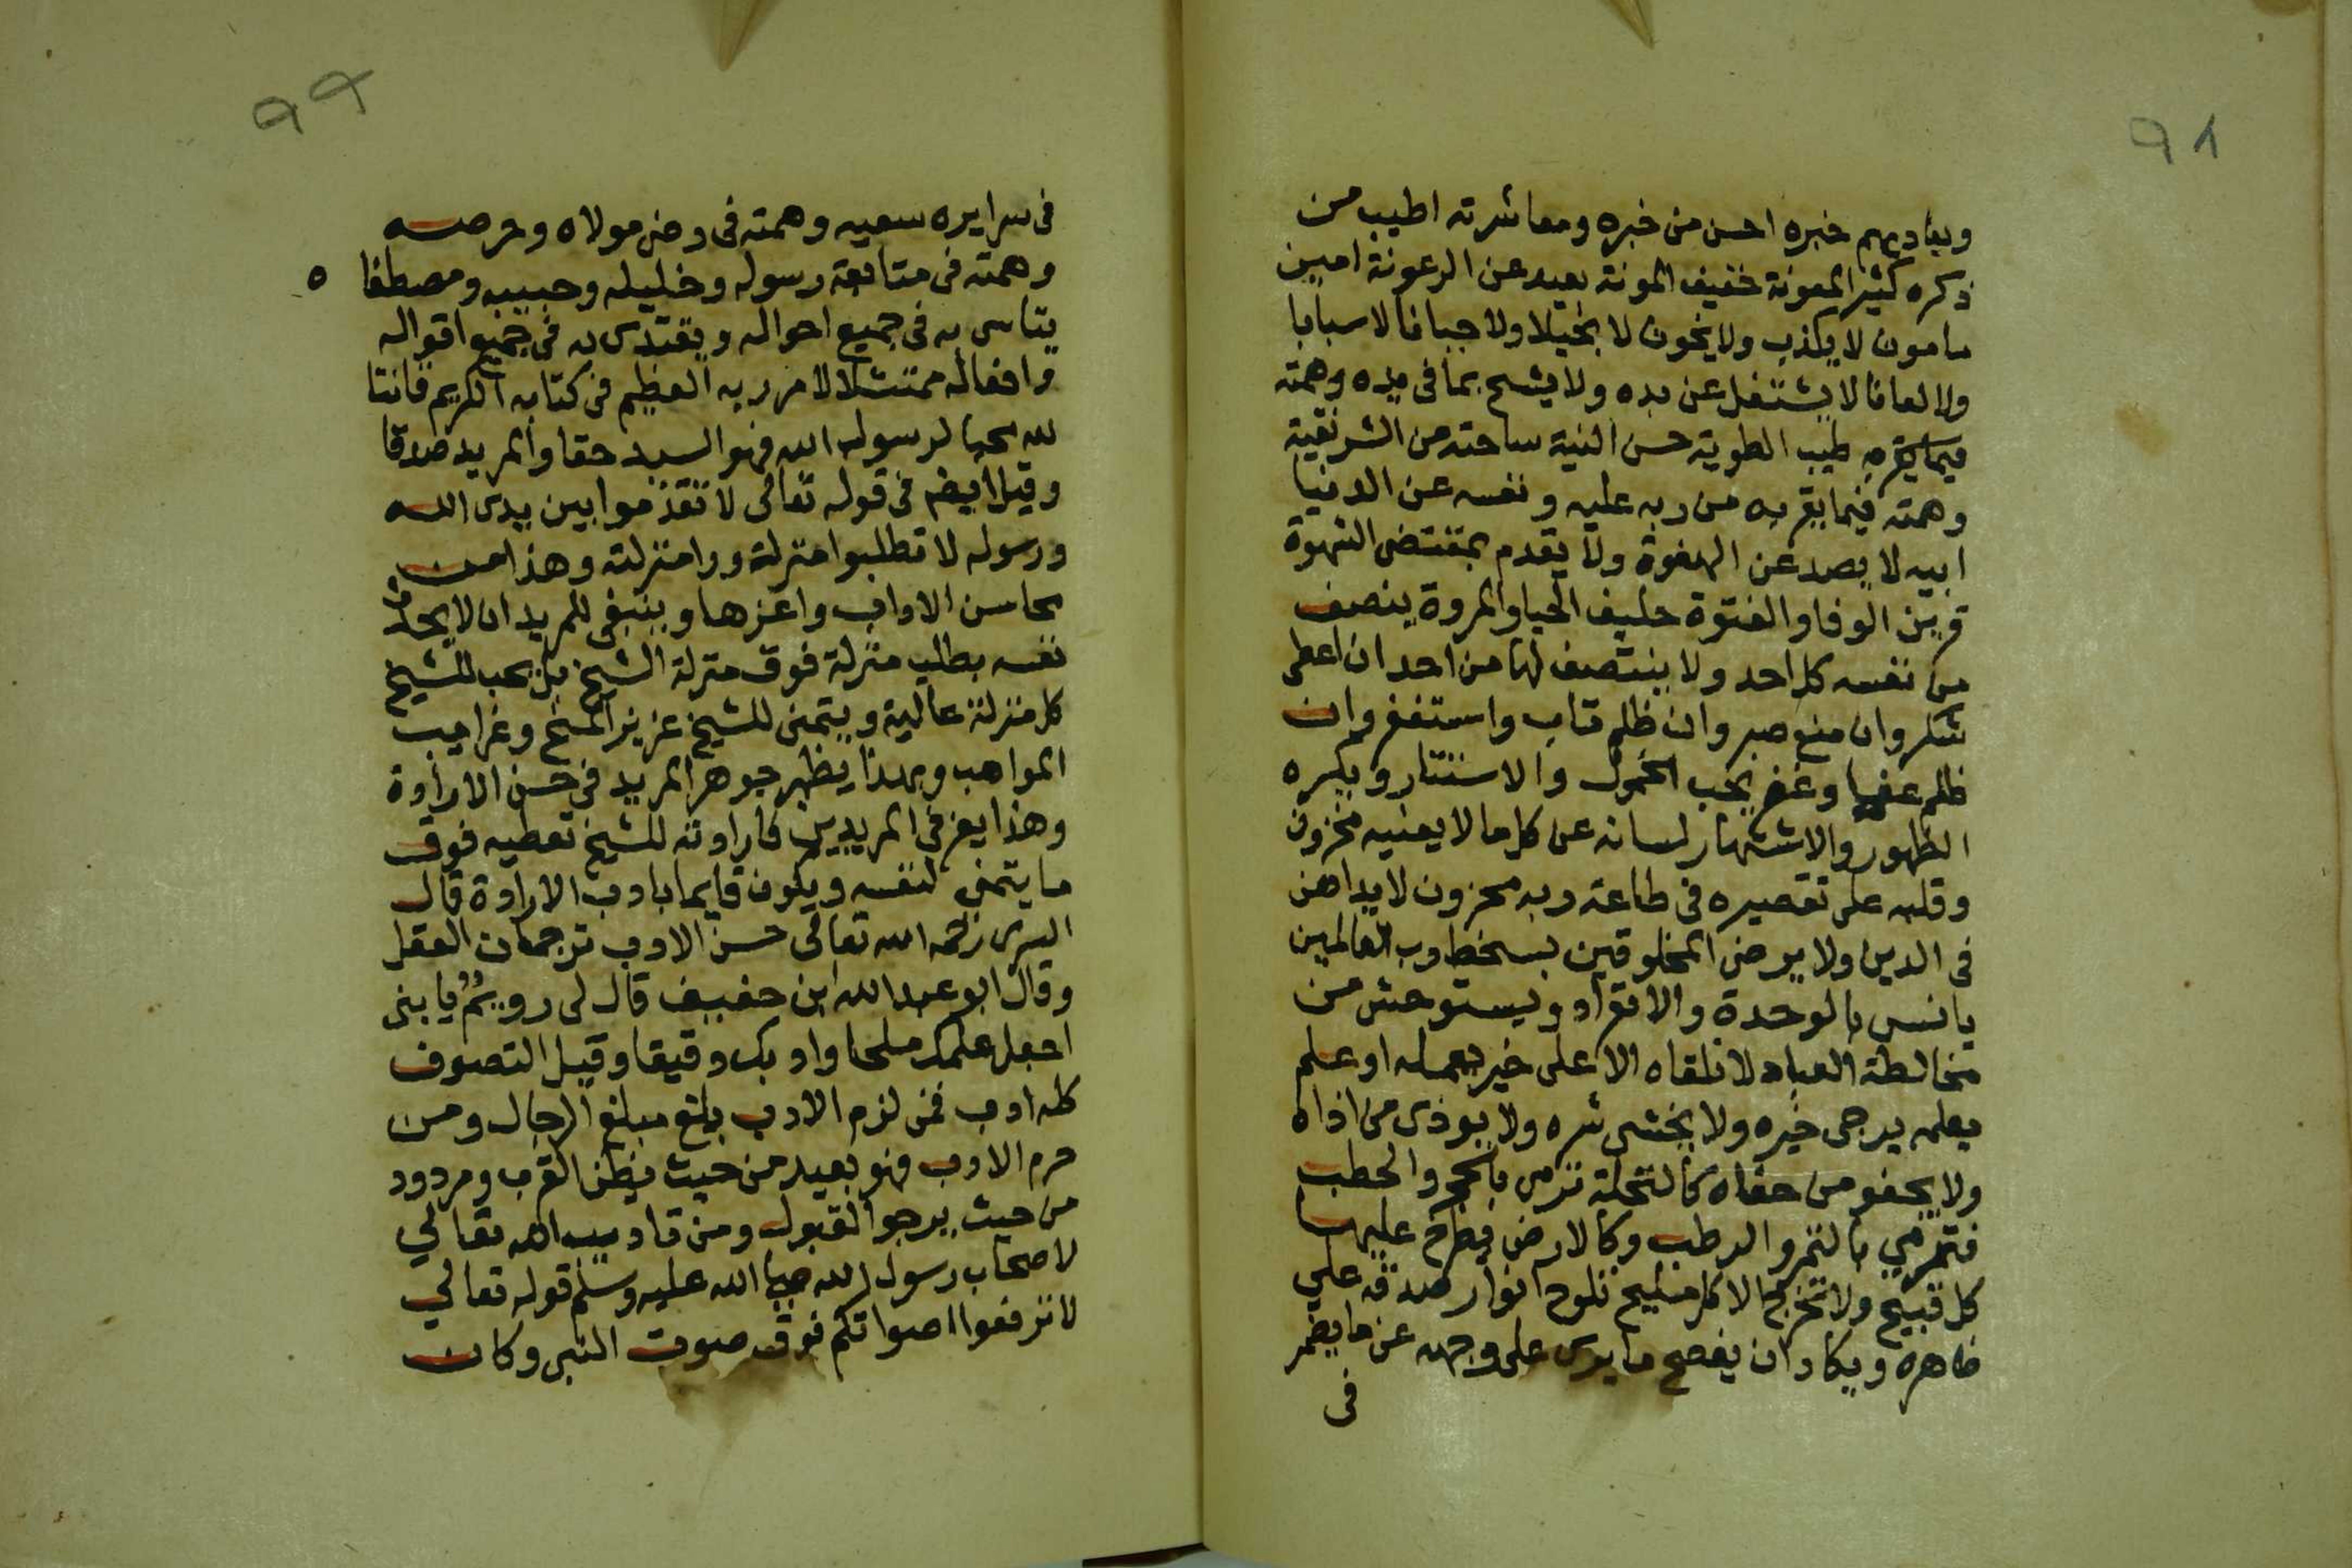 ٩٨
ويعاديهم خبره احسن من خبره ومعاشرته اطيب من
ذكره كثير المعونة خفيف المونة بعيد عن الرعونة امين
مامون لا يكذب ولا يخون لا بخيلا ولا جبانا لا سبابا
ولا لعانا لا يشتغل عن بده ولا يشح بما فى يده وهمته
طيب الطوية حسن النية ساحته من الشر نقية
وهمته فيما يقربه من ربه عليه ونفسه عن الدنيا
ابيه لا يصد عن الهفوة ولا يقدم بمقتضى الشهوة
قرين الوفا والفتوة حليف الحيا والمروة ينصف
من نفسه كل احد ولا ينتصف لها من احد ان اعطى
شكر وان منع صبر وان ظلم تاب واستغفر وان
ظلم عفا وغفر يحب الخمول والاستتار ويكره
الظهور والاشتهار لسانه عن كل ما لا يعنيه مخزون
وقلبه على تقصيره فى طاعة ربه محزون لا يداهن
فى الدين ولا يرضى المخلوقين بسخط رب العالمين
يانس بالوحدة والانفراد ويستوحش من
مخالطة العباد لا تلقاه الا على خير يعمله او علم
يعلمه يرجى خيره ولا يخشى شره ولا يوذى من اذاه
ولا يجفو من جفاه كالنخلة ترمى بالحجر والحطب
فترمي بالتمر والرطب وكالارض يطرح عليها
كل قبيح ولا تخرج الا كل مليح تلوح انوار صدقه على
ظاهره ويكاد ان يفصح ما يرى على وجهه عن ما يضمر
فى
٩٩
فى سرايره سعيه وهمته فى رضى مولاه وحرصه
وهمته فى متابعة رسوله وخليله وحبيبه ومصطفا ه
يتاسى به فى جميع احواله ويقتدى به فى جميع اقواله
وافعاله ممتثلا لامر ربه العظيم فى كتابه الكريم قانتا
لله محبا لرسول الله فهو السيد حقا والمريد صدقا
وقيل ايضا فى قوله تعالى لا تقدموا بين يدى الله
ورسوله لا تطلبوا منزلة ورا منزلته وهذا من
محاسن الاداب واعزها وينبغى للمريد ان لا يحدث
نفسه بطلب منزلة فوق منزلة الشيخ بل يحب للشيخ
كل منزلة عالية ويتمنى للشيخ عزيز المنح وغرايب
المواهب وبهذا يظهر جوهر المريد فى حسن الارادة
وهذا يعز في المريدين فارادته للشيخ تعطيه فوق
ما يتمنى لنفسه ويكون قايما بادب الارادة قال
السرى رحمه الله تعالى حسن الادب ترجمان العقل
وقال ابو عبد الله ابن حفيف قال لى رويم يا بنى
اجعل علمك ملحا وادبك دقيقا وقيل التصوف
كله ادب فمن لزم الادب بلغ مبلغ الرجال ومن
حرم الادب فهو بعيد من حيث يظن القرب ومردود
من حيث يرجوا القبول ومن تاديب الله تعالي
لاصحاب رسول الله صلى الله عليه وسلم قوله تعالي
لا ترفعوا اصواتكم فوق صوت النبى وكان